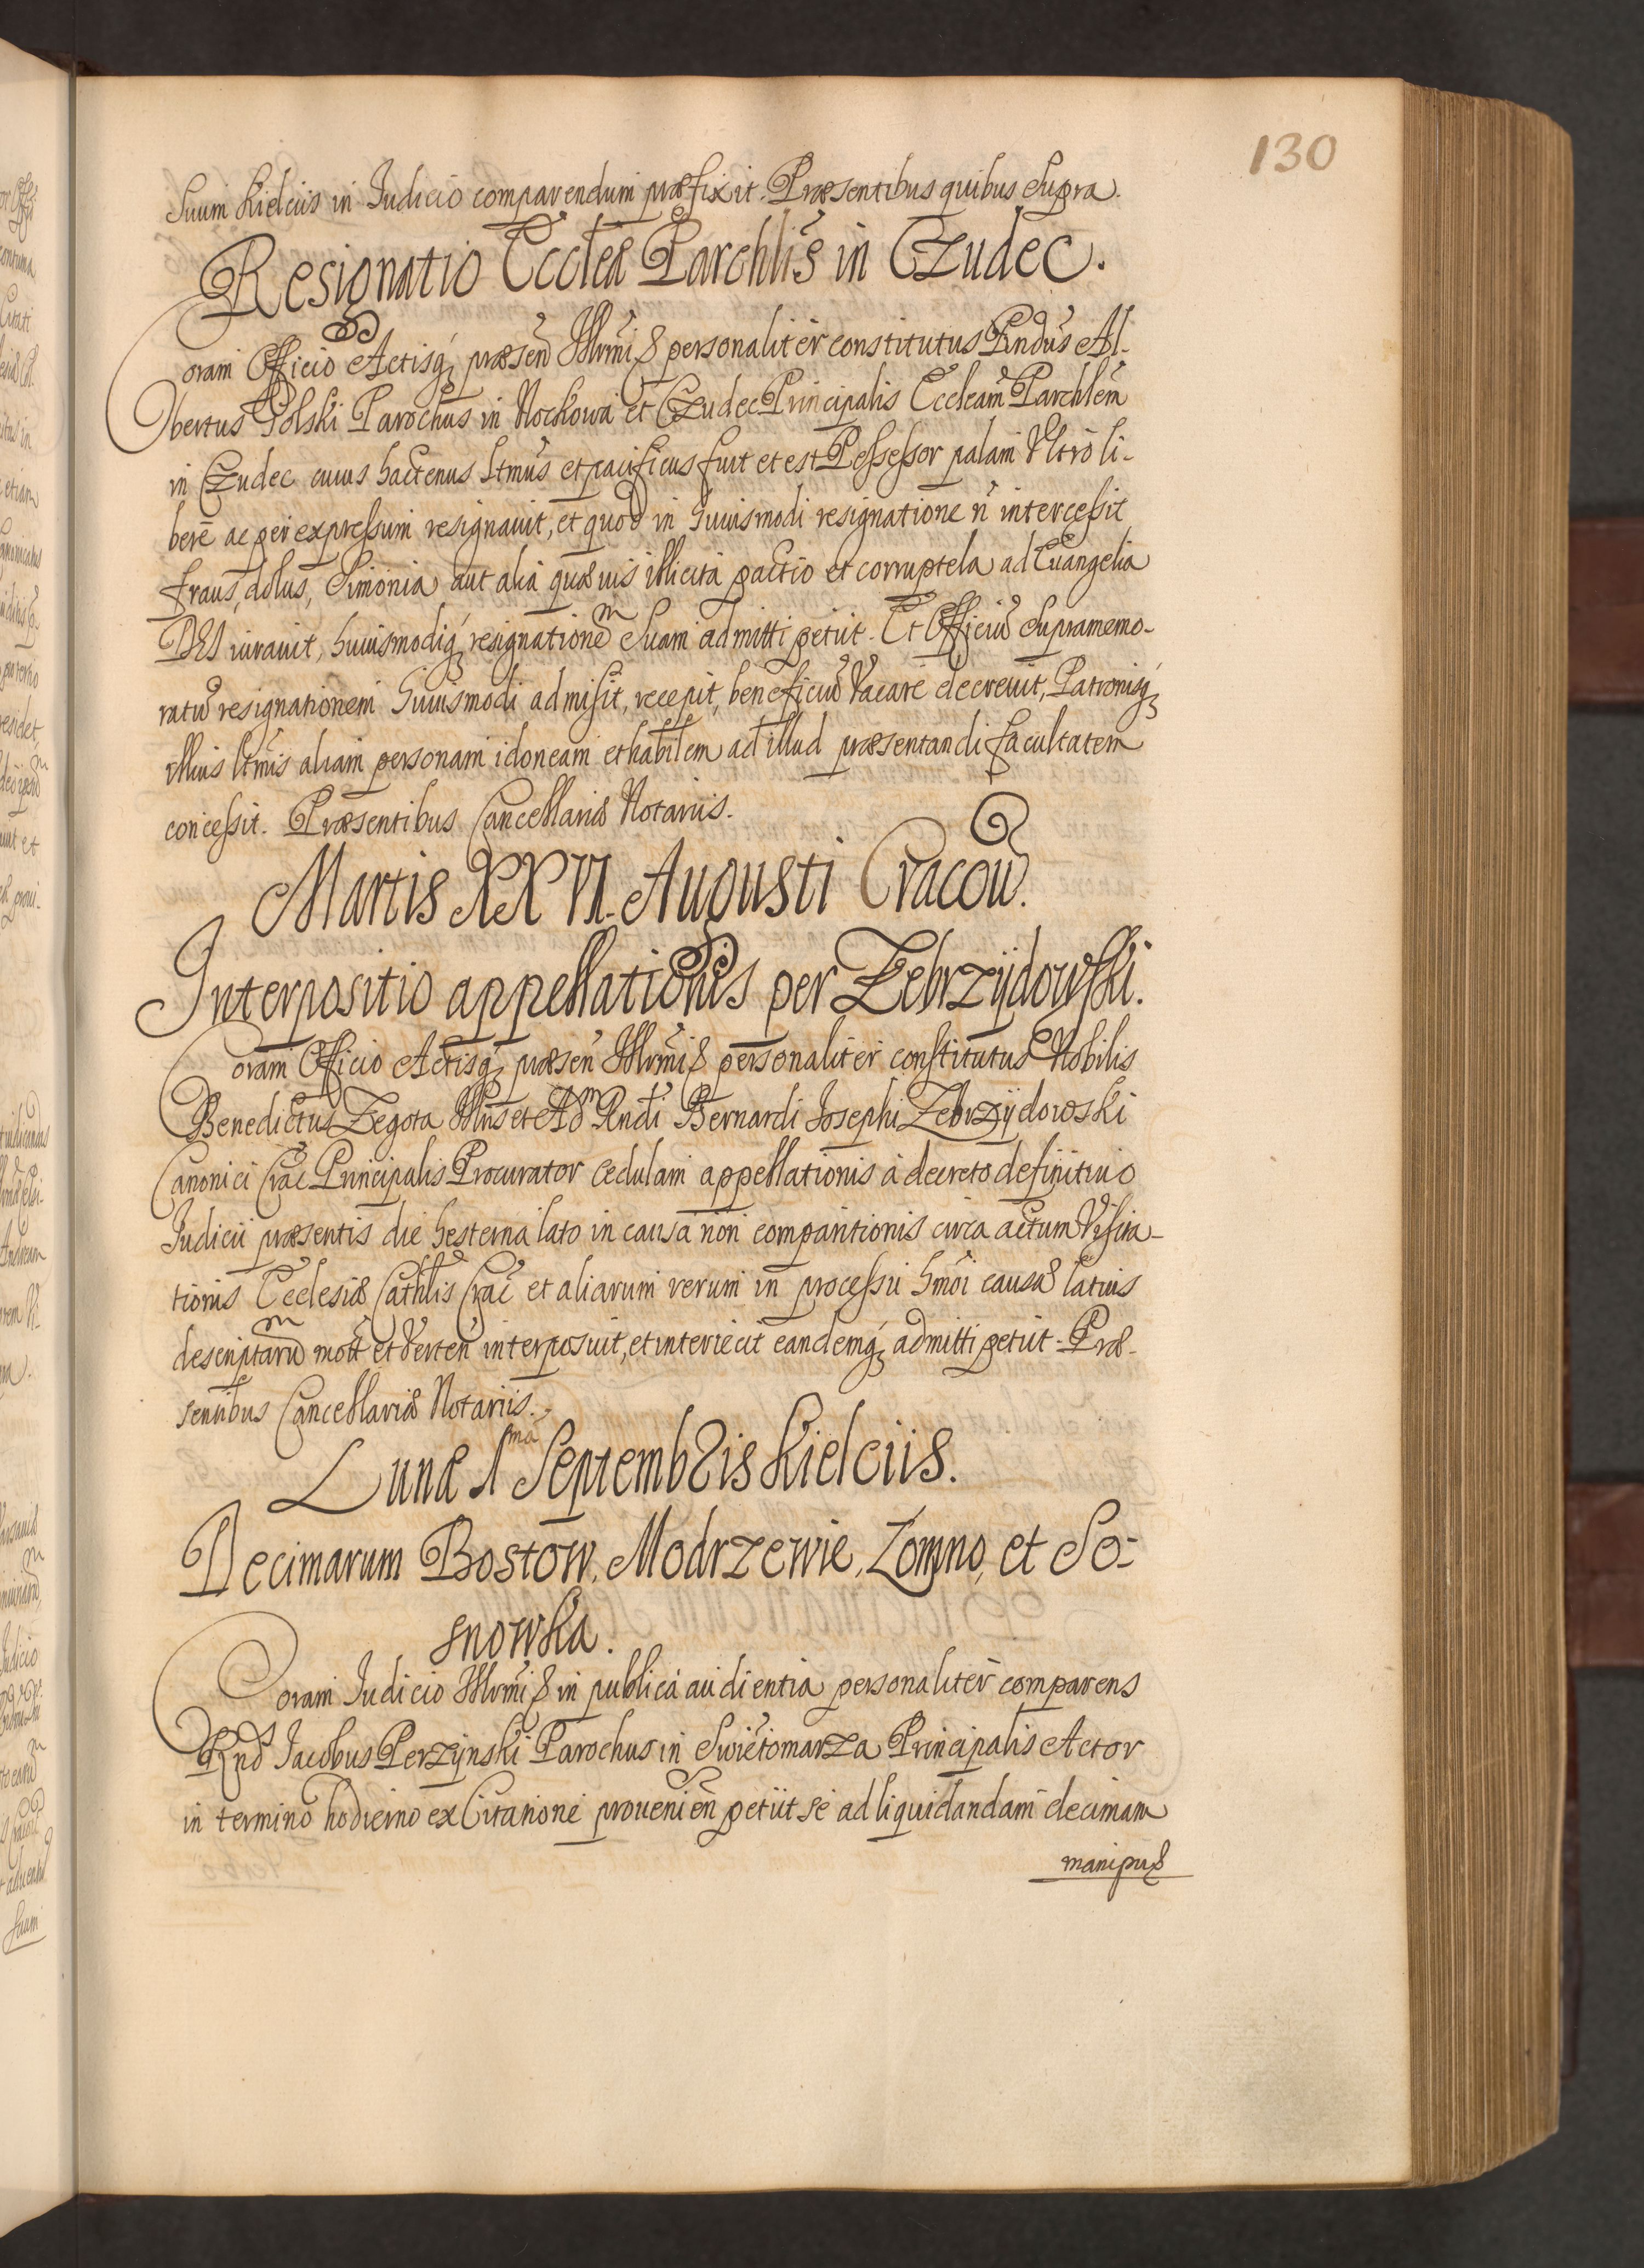 130
Suum Kielciis in Iudicio comparendum præfixit. Præsentibus quibus Supra.
Resignatio Eccleæ Parchlis in Czudec.
Coram Officio Actisq; præsen Illrmi & personaliter constitutus Rndus Al-
bertus Polski Parochus in Nockowa et Czudec Principalis Eccleam Parchlem
in Czudec cuius hactenus ltmus et pacificus fuit et est Possessor palam Vltro li-
berè ac per expressum resignauit, et quod in huiusmodi resignatione n intercessit
fraus, dolus, Simonia aut alia quæuis illicita pactio et corruptela ad Euangelia
DEI iurauit, huiusmodiq; resignationem Suam admitti petiit. Et Officiu Supramemo-
ratu resignationem huiusmodi admisit, recepit, beneficiu Vacare decreuit, Patronisq;
illius ltmis aliam personam idoneam et habilem ad illud præsentandi facultatem
concessit. Præsentibus Cancellariæ Notariis.
Martis XXVI. Augusti Cracou.
Interpositio appellationis per Zebrzÿdowski.
Coram Officio Actisq; præsen Illrmi & personaliter constitutus Nobilis
Benedictus Zegota Illris et Adm Rndi Bernardi Josephi Zebrzÿdowski
Canonici Crac Principalis Procurator Cedulam appellationis à decreto definitiuo
Iudicii præsentis die hesterna lato in causa non comparitionis circa actum Visita-
tionis Ecclesiæ Cathlis Crac et aliarum rerum in processu hmoi causæ latius
descriptaru mott et Verten interposuit, et interiecit eandemq; admitti petiit. Præ-
sentibus Cancellariæ Notariis.
Lunæ 1ma Septembris Kielciis.
Decimarum Bostow, Modrzewie, Lomno, et So-
snowka.
Coram Iudicio Illrmi & in publica audientia personaliter comparens
Rnds Jacobus Perzÿnski Parochus in Swietomarza Principalis Actor
in termino hodierno ex Citatione prouenien petiit se ad liquidandam decimam
manipu&